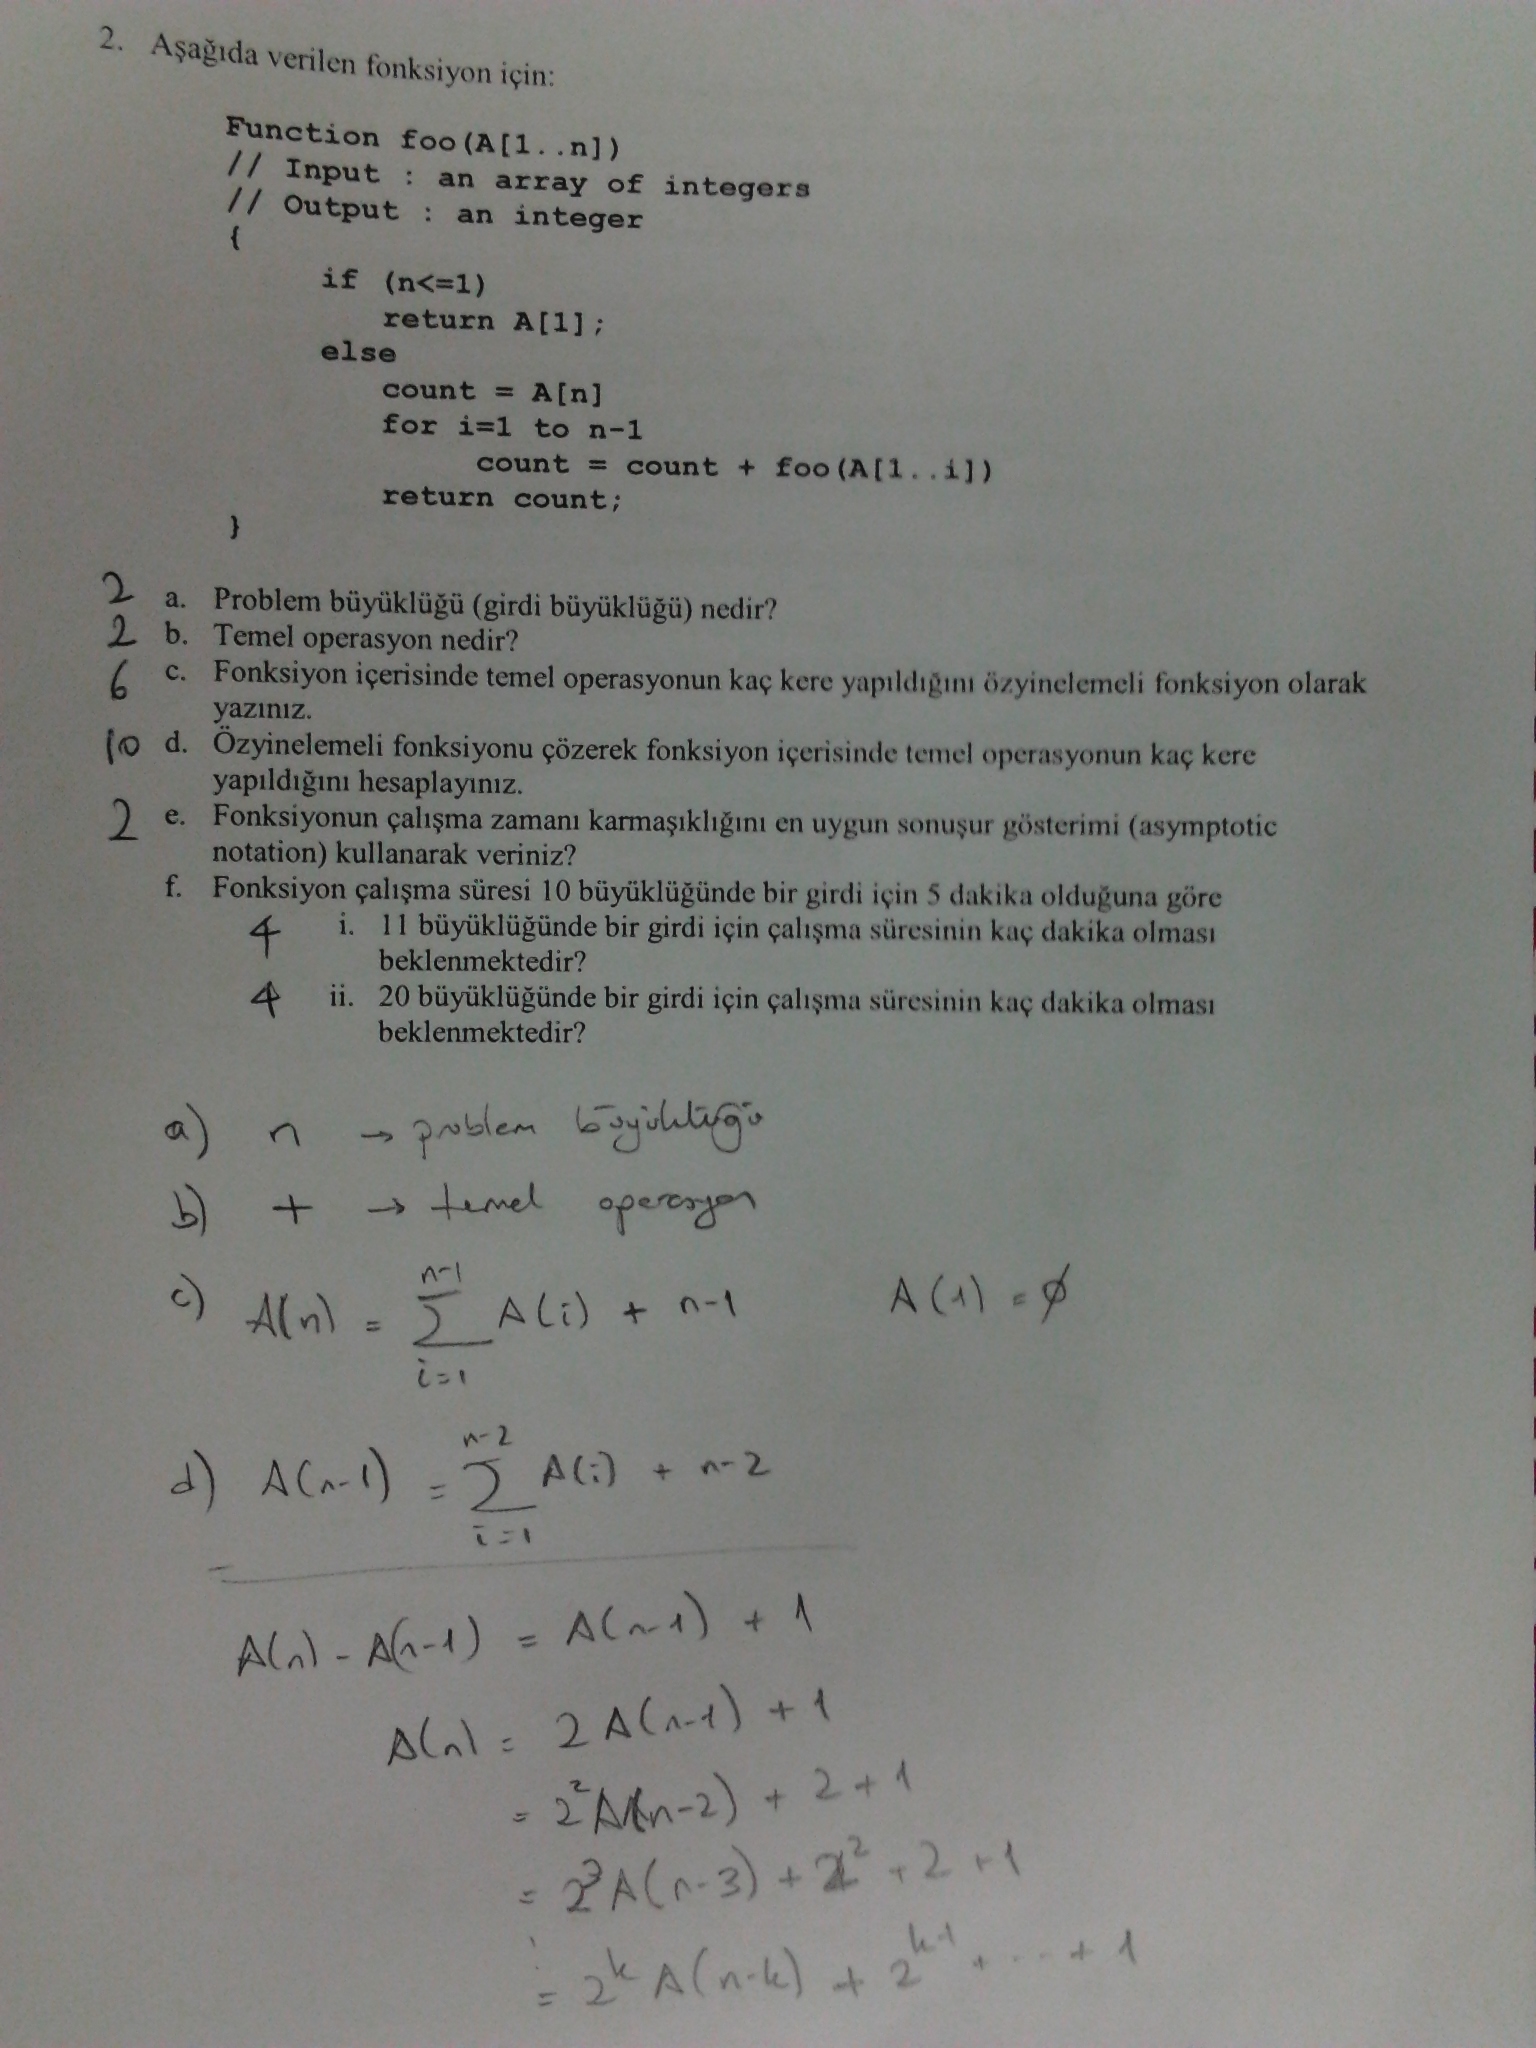 2. Aşağıda verilen fonksiyon için:
Function foo(A[1..n])
// Input : an array of integers
// Output : an integer
{
if (n<=1)
return A[1];
else
count = A[n]
for i=1 to n-1
count = count + foo(A[1..i])
return count;
}
2 a. Problem büyüklüğü (girdi büyüklüğü) nedir?
2 b. Temel operasyon nedir?
6 c. Fonksiyon içerisinde temel operasyonun kaç kere yapıldığını özyinelemeli fonksiyon olarak
yazınız.
10 d. Özyinelemeli fonksiyonu çözerek fonksiyon içerisinde temel operasyonun kaç kere
yapıldığını hesaplayınız.
2 e. Fonksiyonun çalışma zamanı karmaşıklığını en uygun sonuşur gösterimi (asymptotic
notation) kullanarak veriniz?
f. Fonksiyon çalışma süresi 10 büyüklüğünde bir girdi için 5 dakika olduğuna göre
4 i. 11 büyüklüğünde bir girdi için çalışma süresinin kaç dakika olması
beklenmektedir?
4 ii. 20 büyüklüğünde bir girdi için çalışma süresinin kaç dakika olması
beklenmektedir?
a) n → problem büyüklüğü
b) + → temel operasyon
n-1
c) A(n) = Σ A(i) + n-1 A(1) = ϕ
i=1
n-2
d) A(n-1) = Σ A(i) + n-2
i=1
A(n) - A(n-1) = A(n-1) + 1
A(n) = 2A(n-1) + 1
= 2²A(n-2) + 2 + 1
= 2³A(n-3) + 2² + 2 + 1
⋮
= 2ᵏ A(n-k) + 2ᵏ⁻¹ + ... + 1